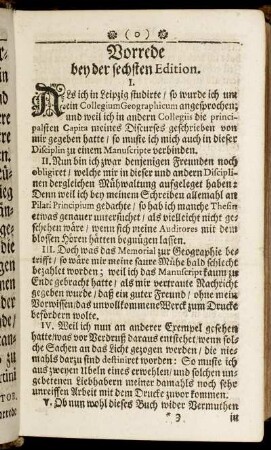 ❧ ( 0 ) ❧
Vorrede
bey der sechsten Edition.
I.
ALs ich in Leipzig studirte / so wurde ich um
ein Collegium Geographicum angesprochen;
und weil ich in andern Collegiis die princi-
palsten Capita meines Discurses geschrieben von
mir gegeben hatte / so muste ich mich auch in dieser
Disciplin zu einem Manuscripte verbinden.
II. Nun bin ich zwar denjenigen Freunden noch
obligiret / welche mir in dieser und andern Discipli-
nen dergleichen Mühwaltung aufgeleget haben:
Denn weil ich bey meinem Schreiben allemahl an
Pilati Principium gedachte; so hab ich manche Thesin
etwas genauer untersuchet / als vielleicht nicht ge-
schehen wäre / wenn sich meine Auditores mit dem
blossen Hören hätten begnügen lassen.
III. Doch was das Memorial zur Geographie be-
trifft / so wäre mir meine saure Mühe bald schlecht
bezahlet worden; weil ich das Manuscript kaum zu
Ende gebracht hatte / als mir vertraute Nachricht
gegeben wurde / daß ein guter Freund / ohne mein
Vorwissen / das unvollkommene Werck zum Drucke
befördern wolte.
IV. Weil ich nun an anderer Exempel gesehen
hatte / was vor Verdruß daraus entstehet / wenn sol-
che Sachen an das Licht gezogen werden / die nie-
mahls darzu sind destiniret worden: So muste ich
aus zweyen Ubeln eines erwehlen / und solchen un-
gebetenen Liebhabern meiner damahls noch sehr
unreiffen Arbeit mit dem Drucke zuvor kommen.
V. Ob nun wohl dieses Buch wider Vermuthen
in